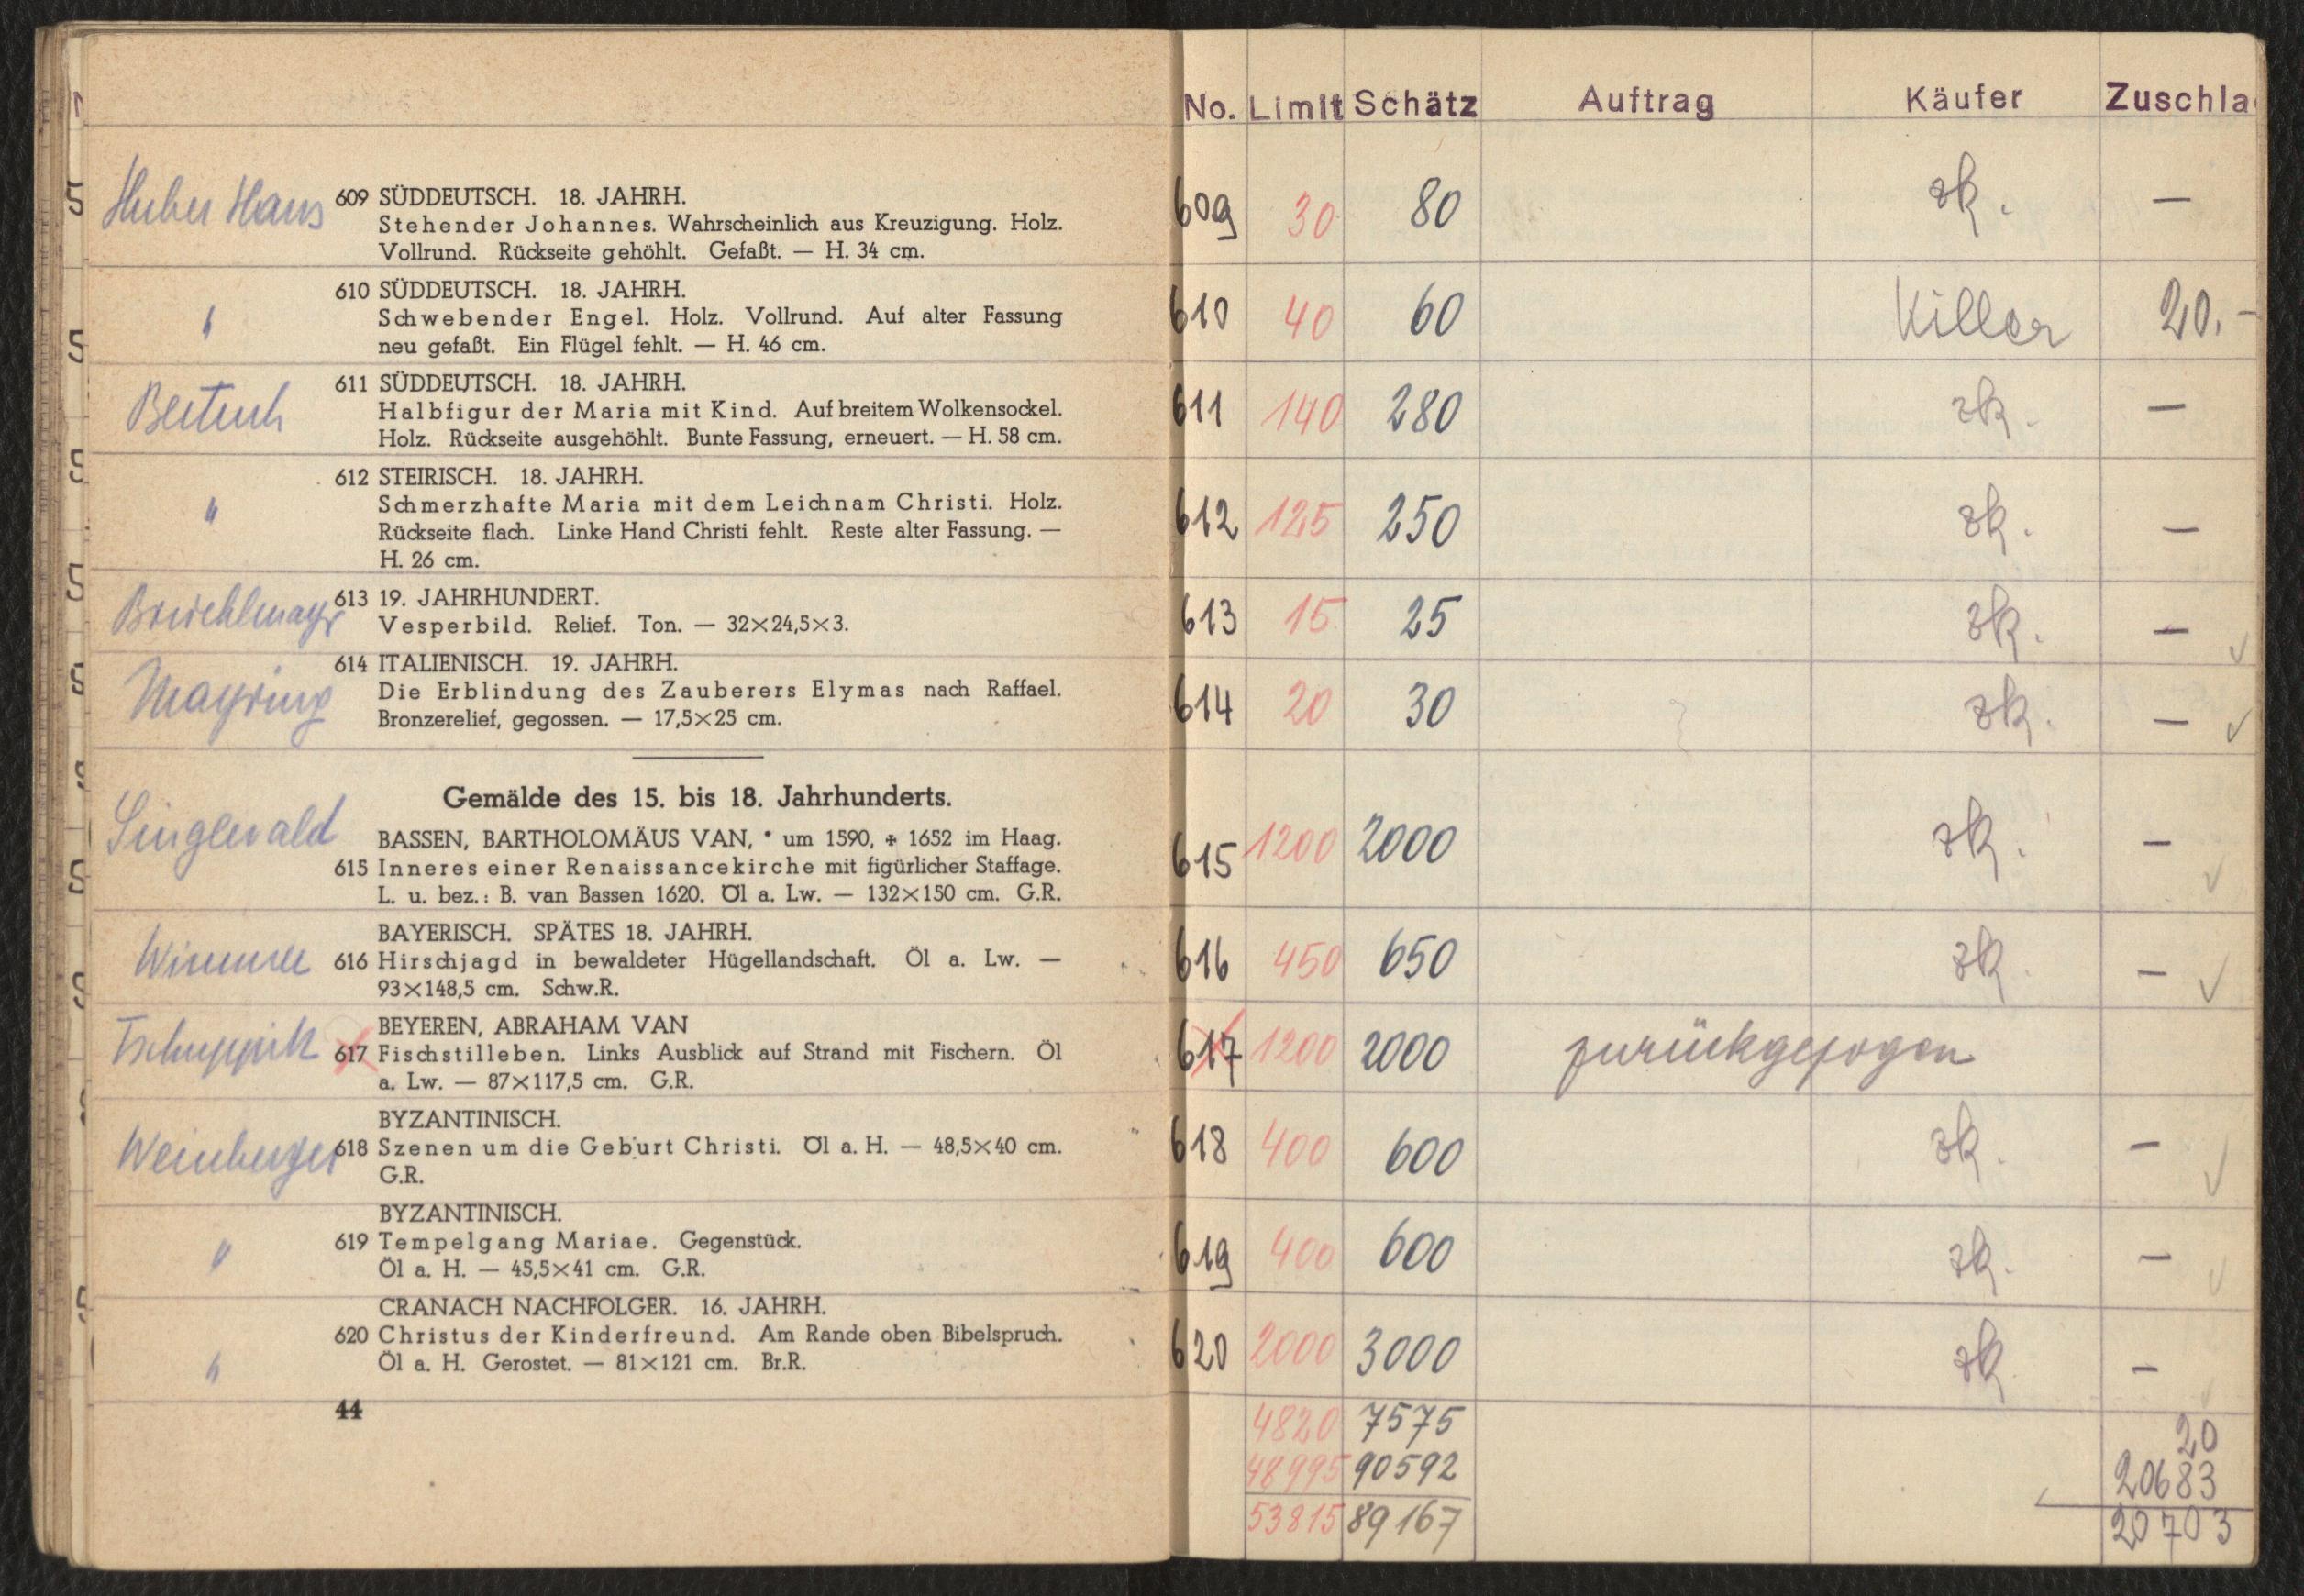 Huber Hans
609 SÜDDEUTSCH. 18. JAHRH.
Stehender Johannes. Wahrscheinlich aus Kreuzigung. Holz.
Vollrund. Rückseite gehöhlt. Gefaßt. — H. 34 cm.
"
610 SÜDDEUTSCH. 18. JAHRH.
Schwebender Engel. Holz. Vollrund. Auf alter Fassung
neu gefaßt. Ein Flügel fehlt. — H. 46 cm.
611 SÜDDEUTSCH. 18. JAHRH.
Halbfigur der Maria mit Kind. Auf breitem Wolkensockel.
Holz. Rückseite ausgehöhlt. Bunte Fassung, erneuert. — H. 58 cm.
"
612 STEIRISCH. 18. JAHRH.
Schmerzhafte Maria mit dem Leichnam Christi. Holz.
Rückseite flach. Linke Hand Christi fehlt. Reste alter Fassung. —
H. 26 cm.
613 19. JAHRHUNDERT.
Vesperbild. Relief. Ton. — 32×24,5×3.
Mayring
614 ITALIENISCH. 19. JAHRH.
Die Erblindung des Zauberers Elymas nach Raffael.
Bronzerelief, gegossen. — 17,5×25 cm.
Gemälde des 15. bis 18. Jahrhunderts.
Singlewald
BASSEN, BARTHOLOMÄUS VAN, * um 1590, + 1652 im Haag.
615 Inneres einer Renaissancekirche mit figürlicher Staffage.
L. u. bez.: B. van Bassen 1620. Öl a. Lw. — 132×150 cm. G.R.
Wimmer
BAYERISCH. SPÄTES 18. JAHRH.
616 Hirschjagd in bewaldeter Hügellandschaft. Öl a. Lw. —
93×148,5 cm. Schw.R.
Tschuppik
BEYEREN, ABRAHAM VAN
617 Fischstilleben. Links Ausblick auf Strand mit Fischern. Öl
a. Lw. — 87×117,5 cm. G.R.
Weinberger
BYZANTINISCH.
618 Szenen um die Geburt Christi. Öl a. H. — 48,5×40 cm.
G.R.
"
BYZANTINISCH.
619 Tempelgang Mariae. Gegenstück.
Öl a. H. — 45,5×41 cm. G.R.
"
CRANACH NACHFOLGER. 16. JAHRH.
620 Christus der Kinderfreund. Am Rande oben Bibelspruch.
Öl a. H. Gerostet. — 81×121 cm. Br.R.
44
No. Limit Schätz Auftrag Käufer Zuschla
609 30 80 zk. —
610 40 60 Killer 20.-
611 140 280 zk. —
612 125 250 zk. —
613 15 25 zk. — ✓
614 20 30 zk. — ✓
615 1200 2000 zk. — ✓
616 450 650 zk. — ✓
617 1200 2000 zurückgezogen
618 400 600 zk. — ✓
619 400 600 zk. — ✓
620 2000 3000 zk —
4820 7575 20
48995 90592 20683
53815 89167 20703